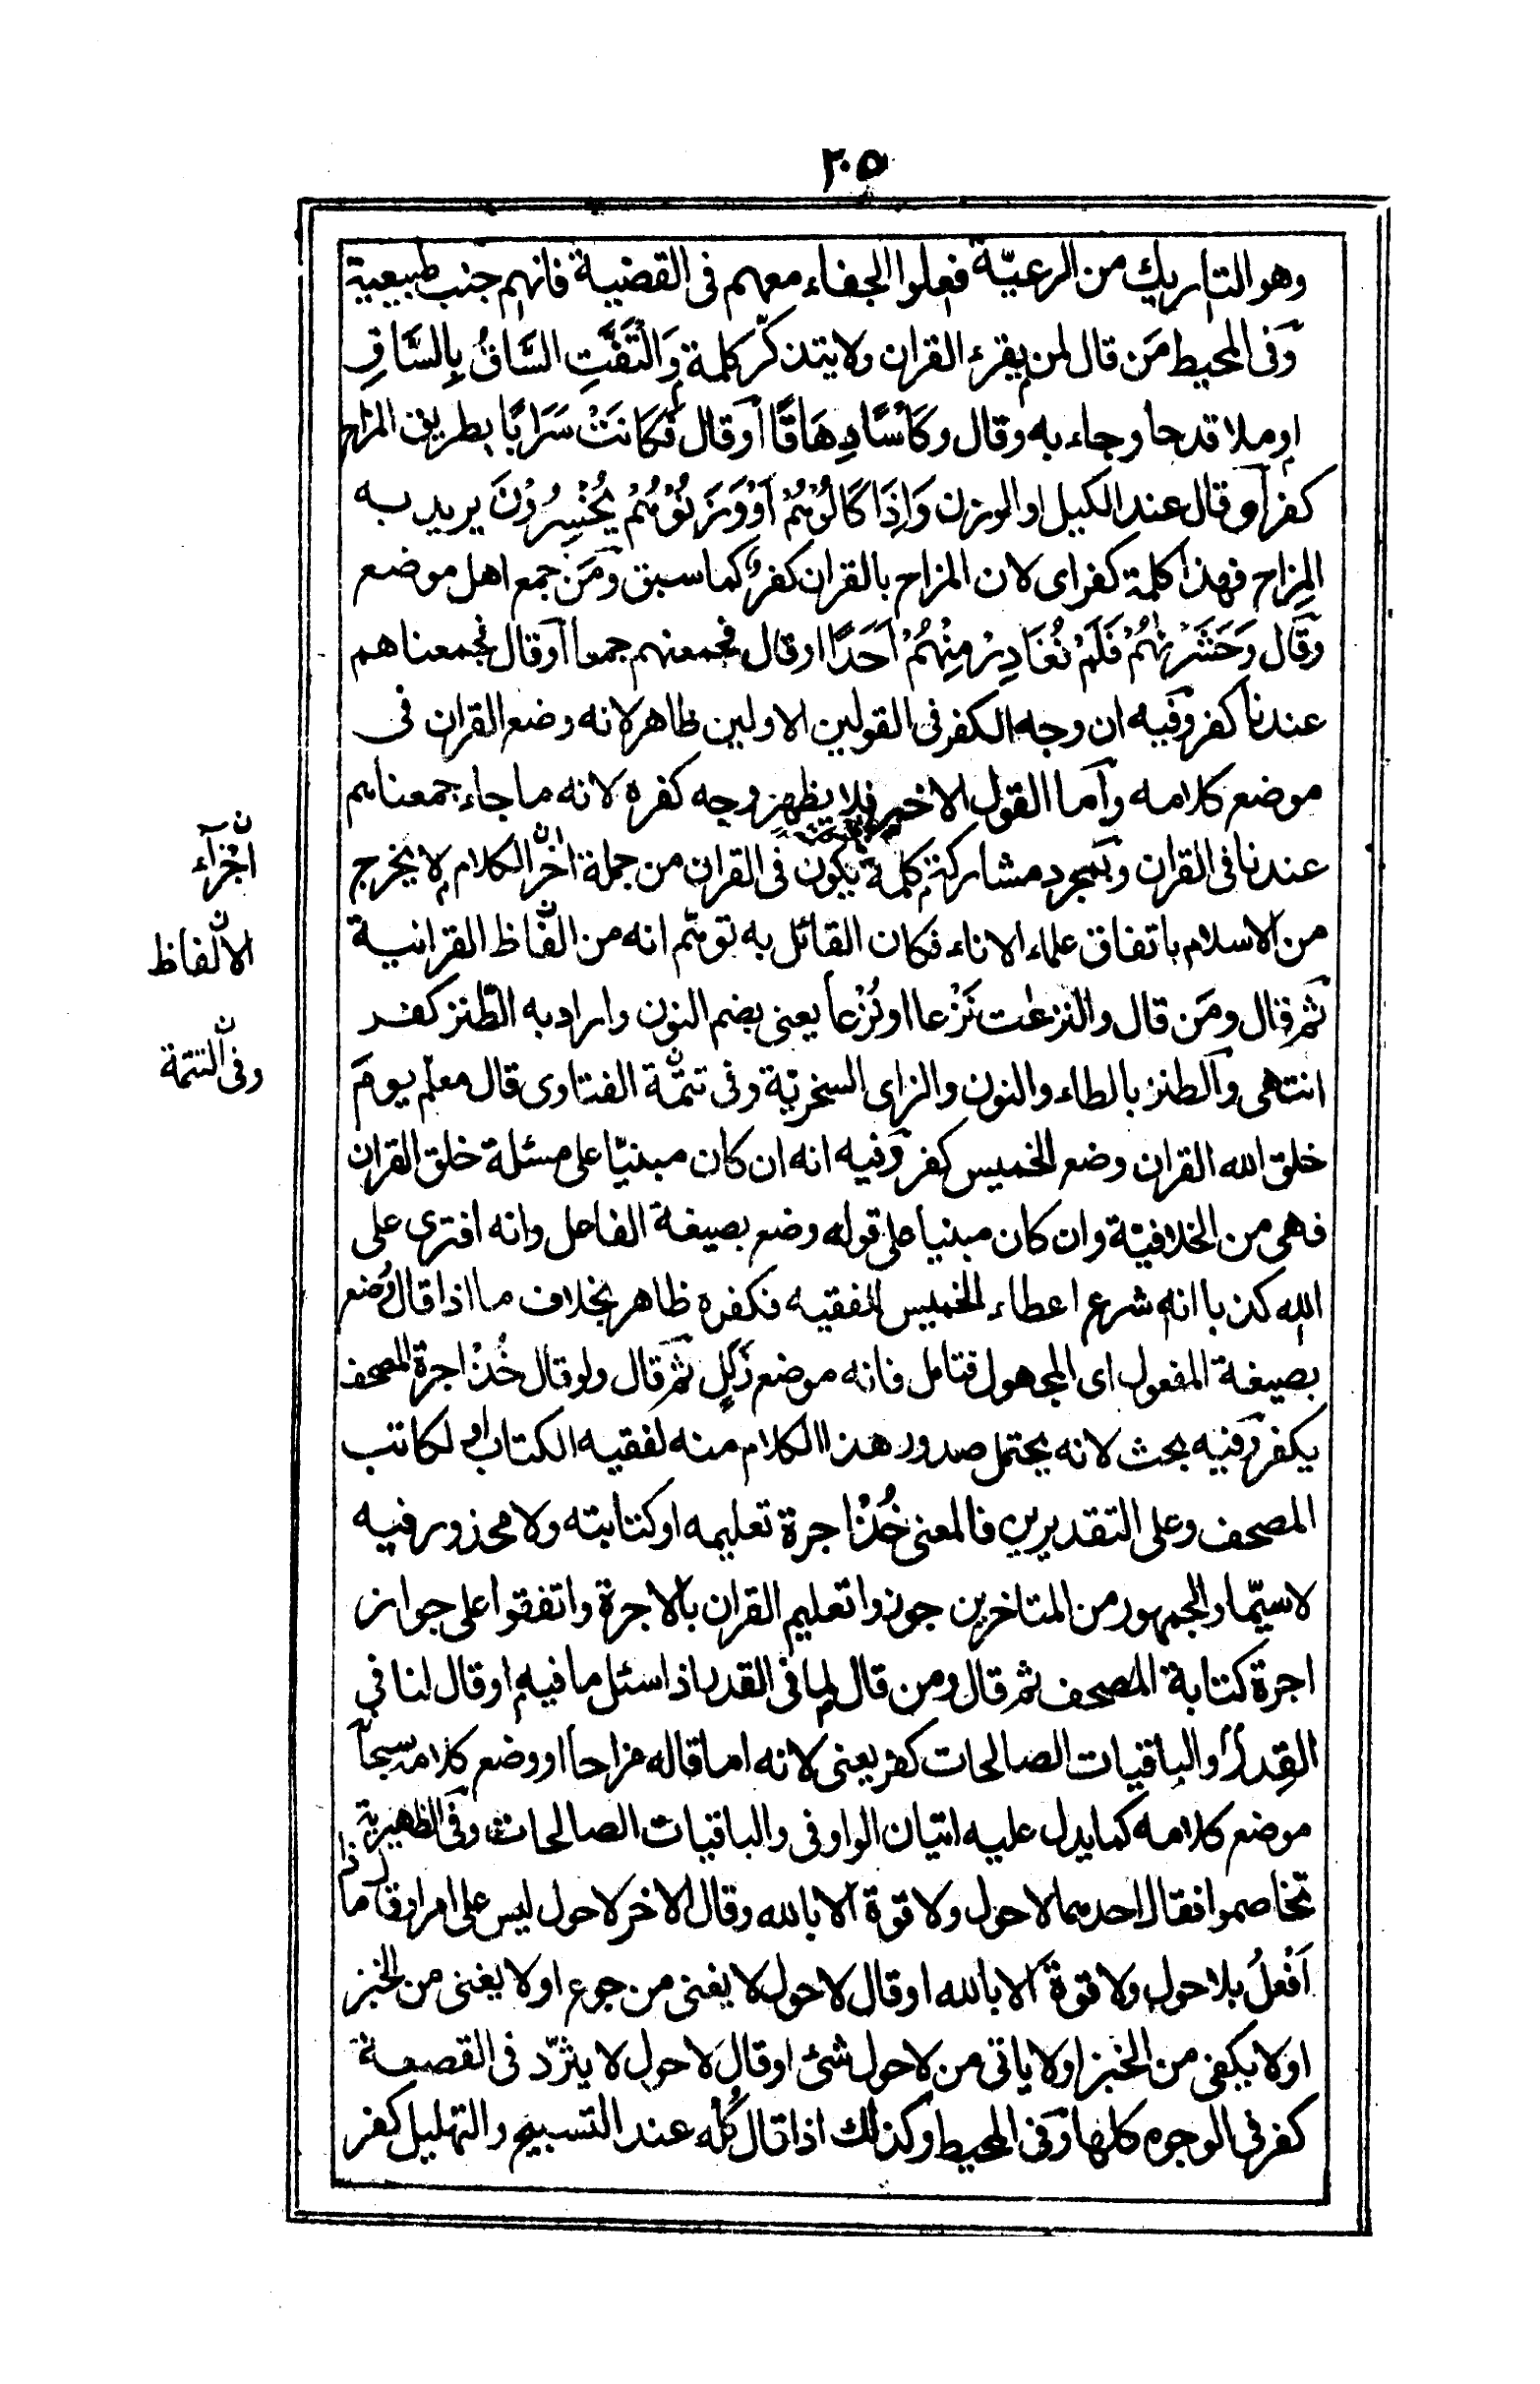 ٢٠٥
وهو التاريك من الرعيّة فعلوا الجفاء معهم فى القضية فانهم جنب طبيعية
وفى المحيط من قال لمن يقرء القران ولا يتذكّر كلمة وَالْتَفَّتِ السَّاقُ بِالسَّاقِ
او ملا قدحا وجاء به وقال وكَأْسًا دِهَاقًا او قال فَكَانَتْ سَرَابًا بطريق المزاح
كفر او قال عند الكيل او الوزن وَاِذَا كَالُوْهُمْ اَوْ وَزَنُوْهُمْ يُخْسِرُوْنَ يريد به
المزاح فهذا كلمة كفر اى لان المزاح بالقران كفر كما سبق ومن جمع اهل موضع
وقال وَحَشَرْنٰهُمْ فَلَمْ نُغَادِرْ مِنْهُمْ اَحَدًا او قال فجمعنهم جمعا او قال فجمعناهم
عندنا كفر وفيه ان وجه الكفر فى القولين الاولين ظاهر لانه وضع القران فى
موضع كلامه واما القول الاخير فلا يظهر وجه كفره لانه ما جاء جمعناهم
عندنا فى القران وبمجرد مشاركة كلمة يكون فى القران من جملة اخر الكلام لا يخرج
من الاسلام باتفاق علماء الاناء فكان القائل به توهّم انه من الفاظ القرانية
ثم قال ومن قال والنزعت نَزْعا او نُزْعا يعنى بضم النون واراد به الطنز كفر
انتهى والطنز بالطاء والنون والزاى السخريّة وفى تتمّة الفتاوى قال معلم يوم
خلق الله القران وضع الخميس كفر وفيه انه ان كان مبنيّا على مسئلة خلق القران
فهى من الخلافيّة وان كان مبنيا على قوله وضع بصيغة الفاعل وانه افترى على
الله كذبا انه شرع اعطاء الخميس للفقيه فكفره ظاهر بخلاف ما اذا قال وُضع
بصيغة المفعول اى المجهول فتامل فانه موضع زلل ثم قال ولو قال خُذْ اجرة المصحف
يكفر وفيه بحث لانه يحتمل صدور هذا الكلام منه لفقيه الكتاب او لكاتب
المصحف وعلى التقديرين فالمعنى خُذْ اجرة تعليمه او كتابته ولا محذور فيه
لا سيّما والجمهور من المتاخرين جوزوا تعليم القران بالاجرة واتفقوا على جواز
اجرة كتابة المصحف ثم قال ومن قال لما فى القدر اذا سئل ما فيه او قال لنا فى
القِدر والباقيات الصالحات كفر يعنى لانه اما قاله مزاحا او وضع كلامه سبحانه
موضع كلامه كما يدل عليه اتيان الواو فى والباقيات الصالحات وفى الظهيرية
تخاصموا فقال احدهما لا حول ولا قوة الا بالله وقال الاخر لا حول ليس على امر او قال ماذا
اَفْعلُ بلا حول ولا قوة الا بالله او قال لا حول لا يغنى من جوع او لا يغنى من الخبز
او لا يكفى من الخبز او لا ياتى من لا حول شئ او قال لا حول لا يثرّد فى القصعة
كفر فى الوجوه كلها وفى المحيط وكذلك اذا قال كُله عند التسبيح والتهليل كفر
اجزآء
الالفاظ
وفى التتمة